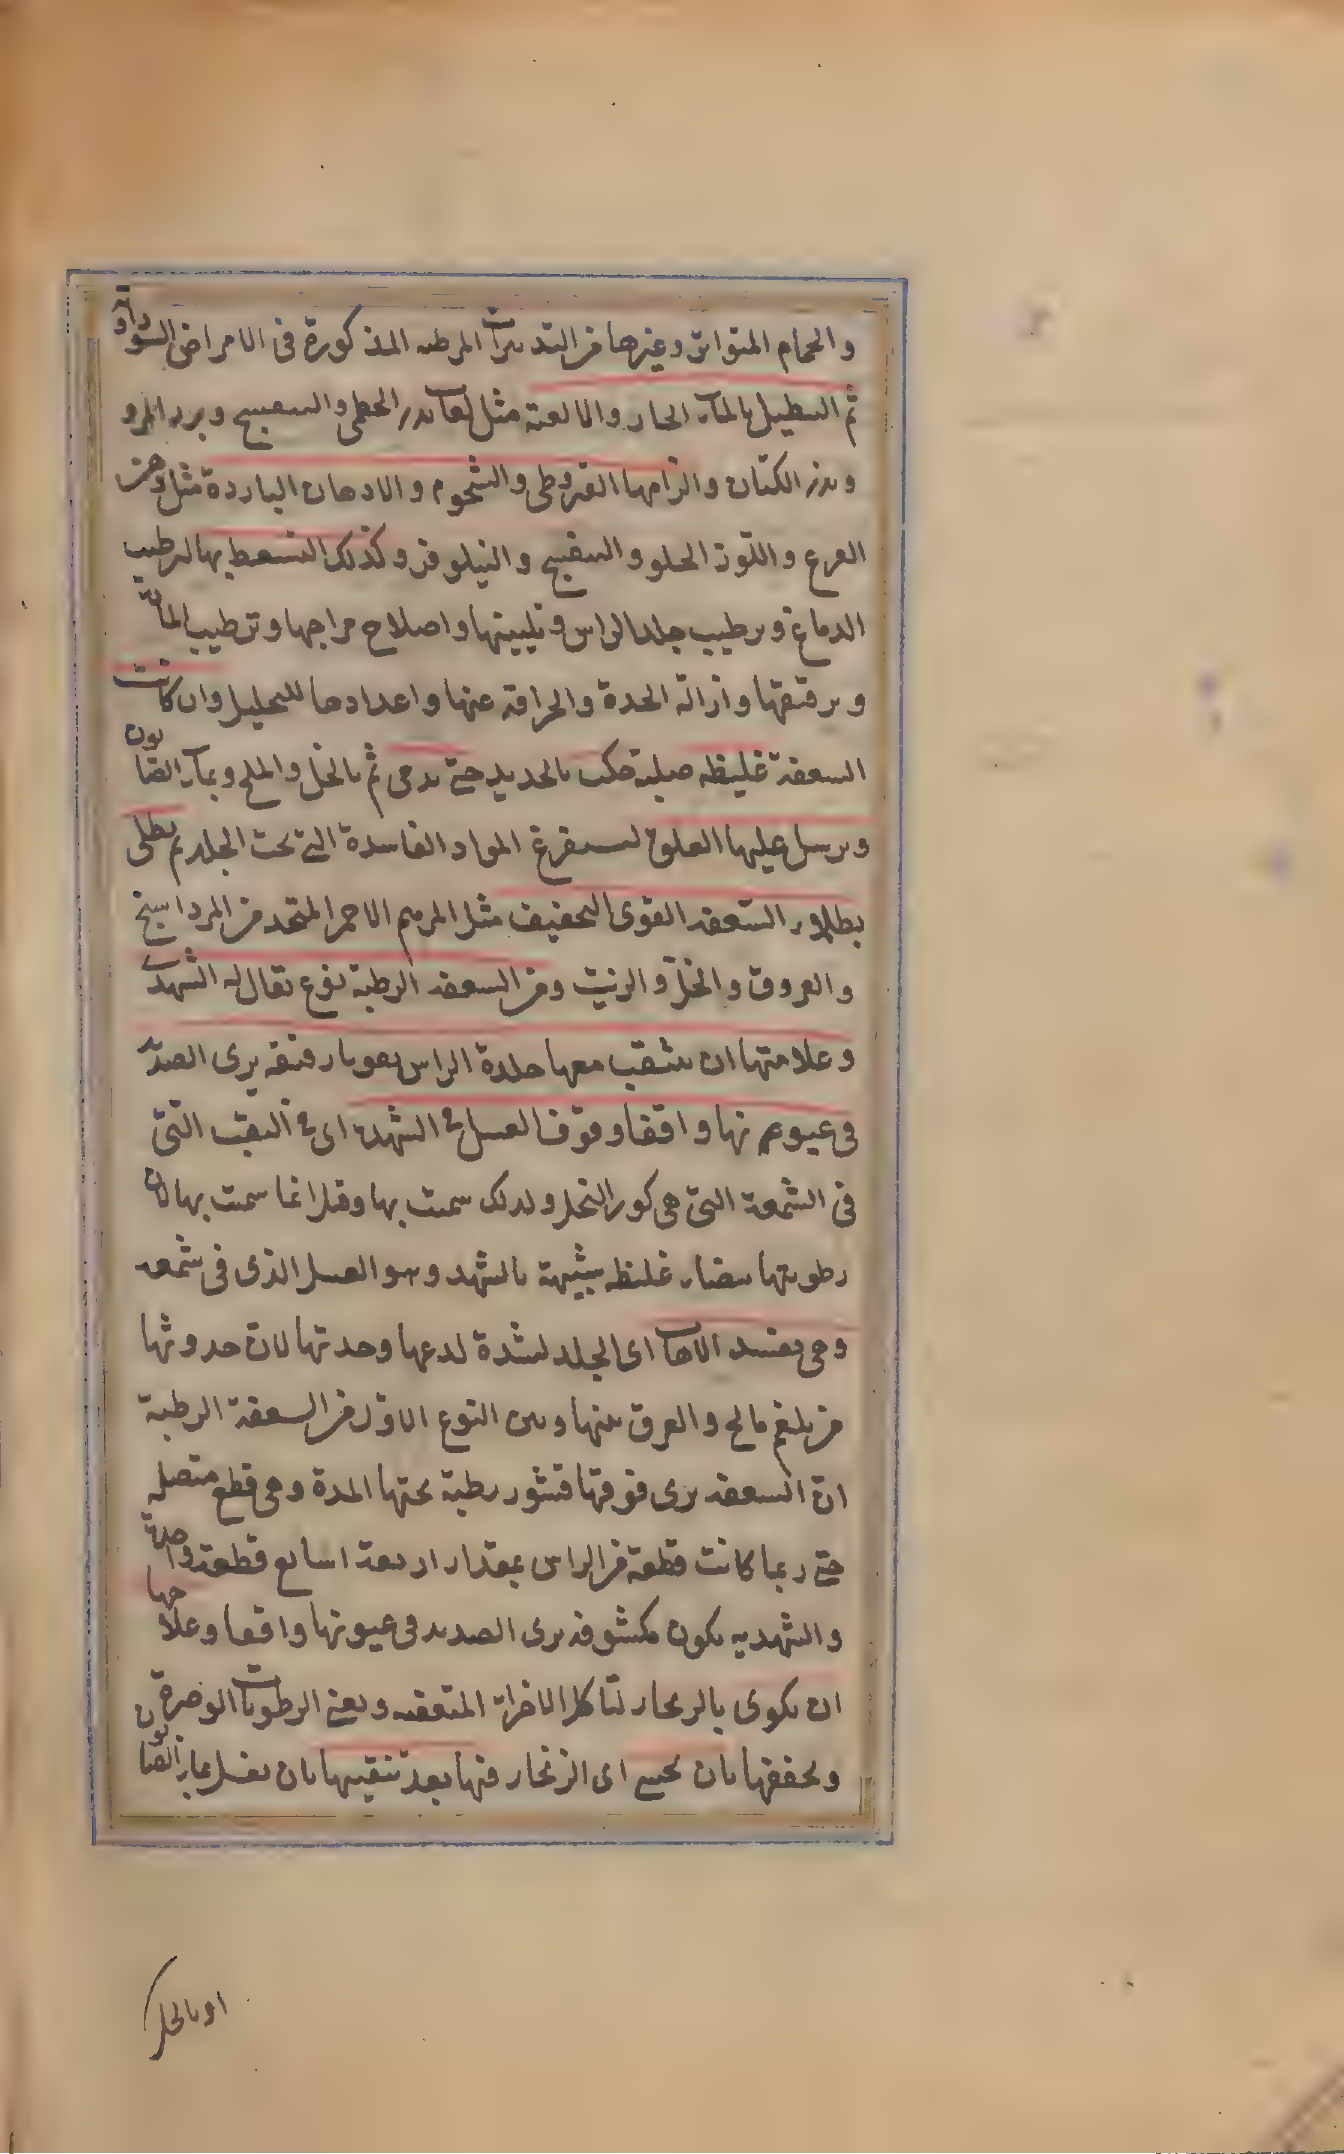 والحمام المتواتر وغيرها من التدبيرات المرطبه المذكورة فى الامراض السوداوية
ثم التنطيل بالماء الحار والالعبة مثل لعاب بذر الخطمى والبنفسج وبزر المرو
وبذر الكتان والزامها القيروطى والشحوم والادهان الباردة مثل دهن
القرع واللوز الحلو والبنفسج والنيلوفر وكذلك التسعط بها لترطيب
الدماغ وترطيب جلد الراس وتليينها واصلاح مزاجها وترطيب المادة
وترقيقها وازالة الحدة والحرافة عنها واعدادها للتحليل وان كانت
السعفة غليظه صلبة حكت بالحديد حتى تدمى ثم بالخل والملح وبماء الصابون
ويرسل عليها العلق لتستفرغ المواد الفاسدة التى تحت الجلد ثم يطلى
بطلاء السعفه القوى التجفيف مثل المرهم الاحمر المتخذ من المرداسنج
والعروق والخل والزيت ومن السعفه الرطبة نوع يقال له الشهدية
وعلامتها ان يتثقب معها جلدة الراس ثقوبا رقيقه يرى الصديد
فى عيونها واقفا وقوف العسل فى الشهد اى فى الثقب التى
فى الشمعة التى هى كور النحل ولذلك سميت بها وقيل انما سميت بها لان
رطوبتها بيضاء غليظه شبيهة بالشهد وهو العسل الذى فى شمعه
وهى تفسد الاهاب اى الجلد لشدة لذعها وحدتها لان حدوثها
من بلغم مالح والفرق بينها وبين النوع الاول من السعفة الرطبة
ان السعفه يرى فوقها قشور رطبة تحتها المدة وهى قطع متصله
حتى ربما كانت قطعة من الراس بمقدار اربعة اصابع قطعة واحدة
والشهديه يكون مكشوفه يرى الصديد فى عيونها واقفا وعلاجها
ان يكوى بالزنجار لتاكل الاجزاء المتعفنه ويفنى الرطوبات الوضرة
ويجففها بان يحشى اى الزنجار فيها بعد تنقيتها بان يغسل بماء الصابون
او بالخل